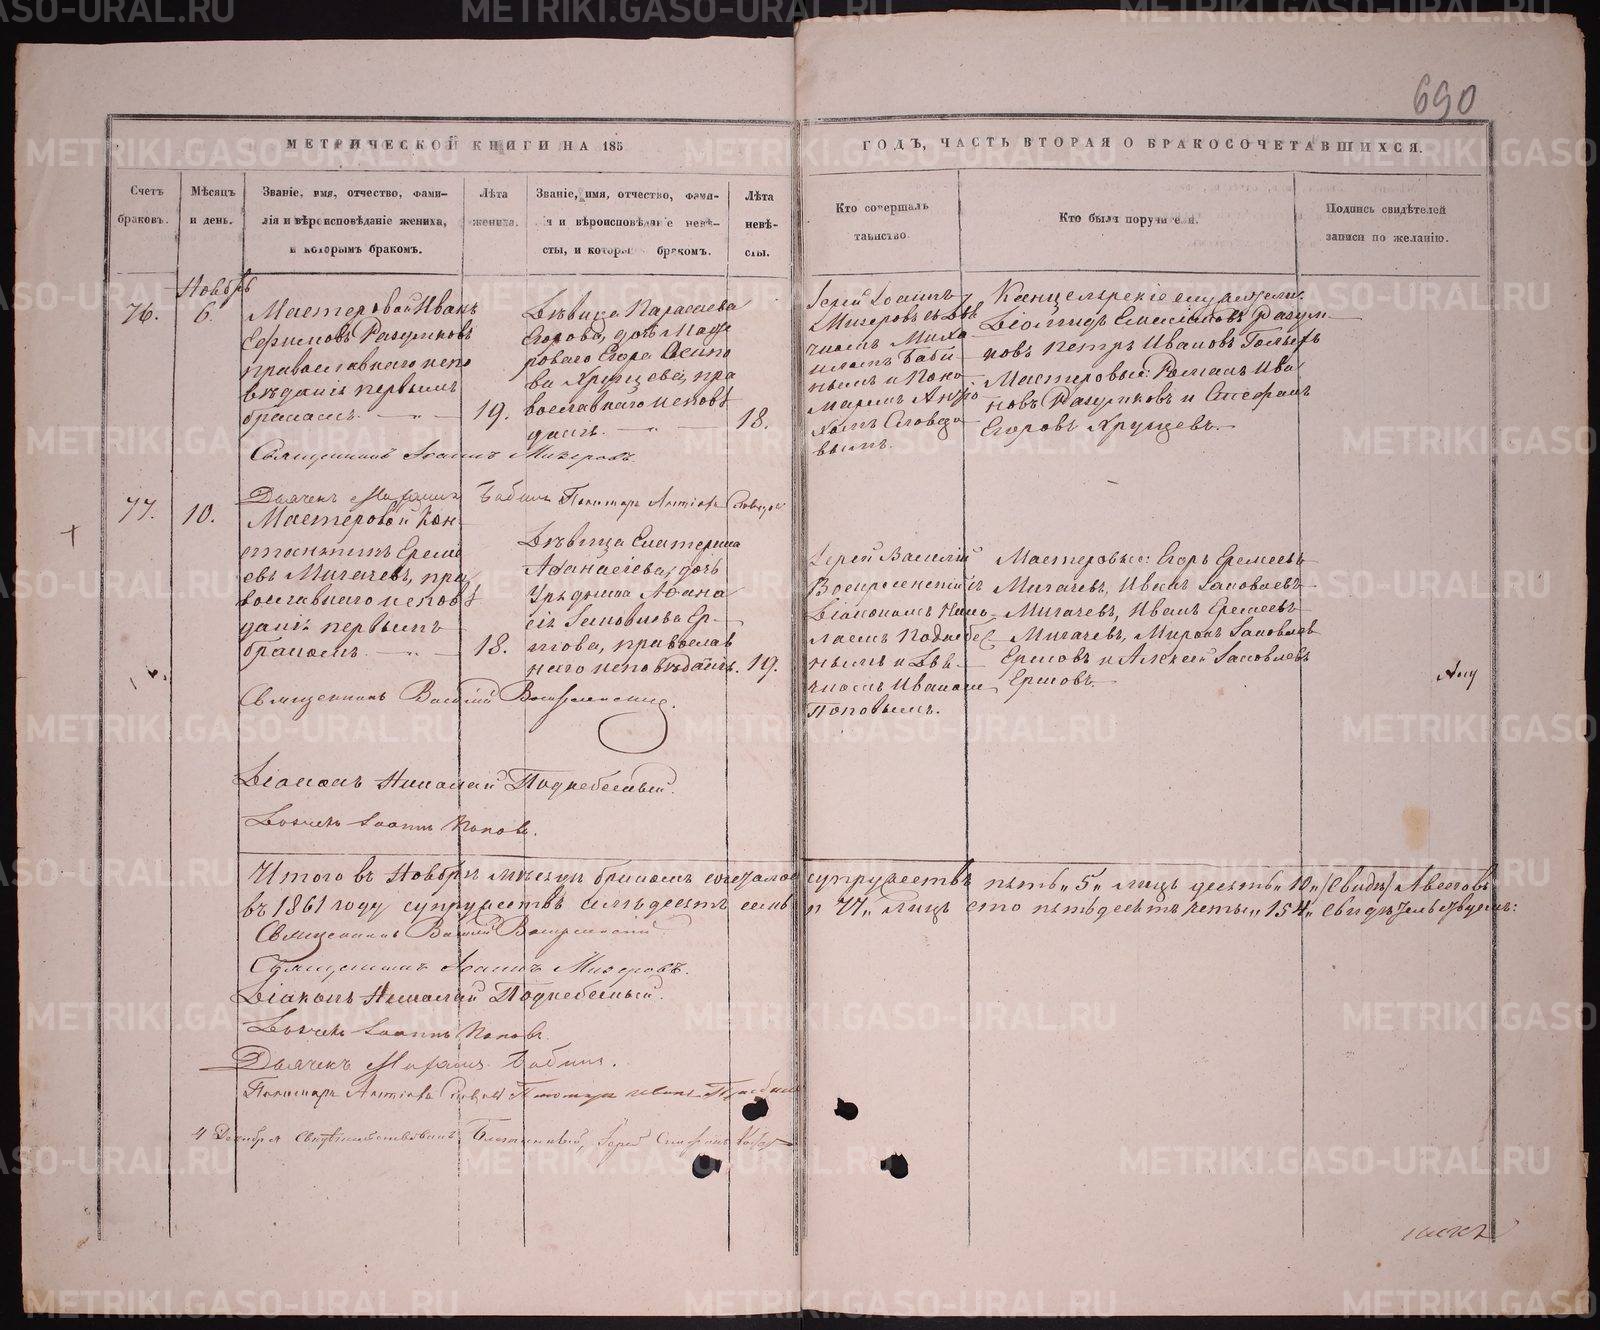 690
МЕТРИЧЕСКОЙ КНИГИ НА 185
ГОДЪ, ЧАСТЬ ВТОРАЯ О БРАКОСОЧЕТАВШИХСЯ.
Счетъ
браковъ.
Мѣсяцъ
и день.
Званіе, имя, отчество, фами-
лія и вѣроисповѣданіе жениха,
и которымъ бракомъ.
Лѣта
жениха.
Званіе, имя, отчество, фами-
лія и вѣроисповѣданіе невѣ-
сты, и которымъ бракомъ.
Лѣта
невѣ-
сты.
Кто совершалъ
таинство.
Кто были поручители.
Подпись свидѣтелей
записи по желанію.
Ноябрь
76.
6.
Мастеровой Иванъ
Ефимовъ Разумковъ
православнаго испо
вѣданія первымъ
бракомъ.
19.
Дѣвица Параскева
Егорова, дочь Масте
роваго Егора Осипо
ва Хрущева, пра
вославнаго исповѣ
данія.
18.
Іерей Іоаннъ
Мизеровъ съ Дья
чкомъ Миха
иломъ Баби
нымъ и Поно
маремъ
Словцо
вымъ.
Канцелярскіе служители
Діомидъ Разум
ковъ Петръ Ивановъ
Мастеровые: Романъ Ива
новъ Разумковъ и Стефанъ
Егоровъ Хрущевъ.
Священникъ Іоаннъ Мизеровъ.
Дьячекъ Михаилъ Бабинъ Пономарь Словцовъ
77.
10.
Мастеровой Кон
стантинъ Ереме
евъ Мичачевъ, пра
вославнаго исповѣ
данія первымъ
бракомъ.
18.
Дѣвица Екатерина
Афанасьева, дочь
Урядника Афана
сія Яковлева Ер-
шова, православ
наго исповѣданія.
19.
Іерей Василій
Воскресенскій съ
Діакономъ Нико
лаемъ Поднебес
нымъ и Дья-
чкомъ Иваномъ
Поповымъ.
Мастеровые: Егоръ Еремеевъ
Мичачевъ, Иванъ Яковлевъ
Мичачевъ, Иванъ Еремеевъ
Мичачевъ, Миронъ Яковлевъ
Ершовъ и Алексѣй Яковлевъ
Ершовъ.
Священникъ Василій Воскресенскій.
Діаконъ Николай Поднебесный.
Дьячекъ Іоаннъ Поповъ.
Итого въ Ноябрѣ мѣсяцѣ бракомъ сочеталось супружествъ пять „5„ лицъ десять „10„
въ 1861 году супружествъ семьдесятъ семь „77„ лицъ сто пятьдесятъ четыре „154„ свидѣтельствуемъ:
Священникъ Василій Воскресенскій
Священникъ Іоаннъ Мизеровъ.
Діаконъ Николай Поднебесный.
Дьячекъ Іоаннъ Поповъ.
Дьячекъ Михаилъ Бабинъ.
Пономарь Словцовъ Пономарь Иванъ
4 Декабря свидѣтельствовалъ Благочинный, Іерей Стефанъ
METRIKI.GASO-URAL.RU